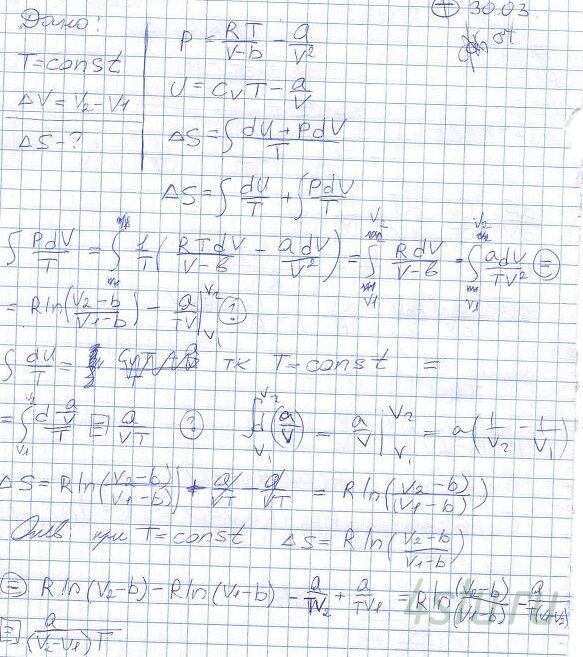 Дано:
T=const
ΔV=V2-V1
ΔS-?
+ 30.03
от
P = RT/(V-b) - a/V²
U = CvT - a/V
ΔS = ∫ (dU+PdV)/T
ΔS = ∫ dU/T + ∫ PdV/T
∫ PdV/T = ∫ 1/T (RTdV/(V-b) - adV/V²) = ∫ V1 V2 RdV/(V-b) = ∫ V1 V2 adV/(TV²) ⊜
= R ln((V2-b)/(V1-b)) - a/(TV) | V1 V2 ?
∫ dU/T = тк T=const =
= ∫ V1 V2 d a/V /T = a/(VT) ? ∫ V1 V2 d(a/V) = a/V | V1 V2 = a(1/V2 - 1/V1)
ΔS = R ln((V2-b)/(V1-b)) + a/(VT) - a/(VT) = R ln((V2-b)/(V1-b))
Отв: при T=const ΔS = R ln((V2-b)/(V1-b))
⊜ R ln(V2-b) - R ln(V1-b) - a/(TV2) + a/(TV1) = R ln((V2-b)/(V1-b)) -
= a/((V2-V1)T)
4stu.ru